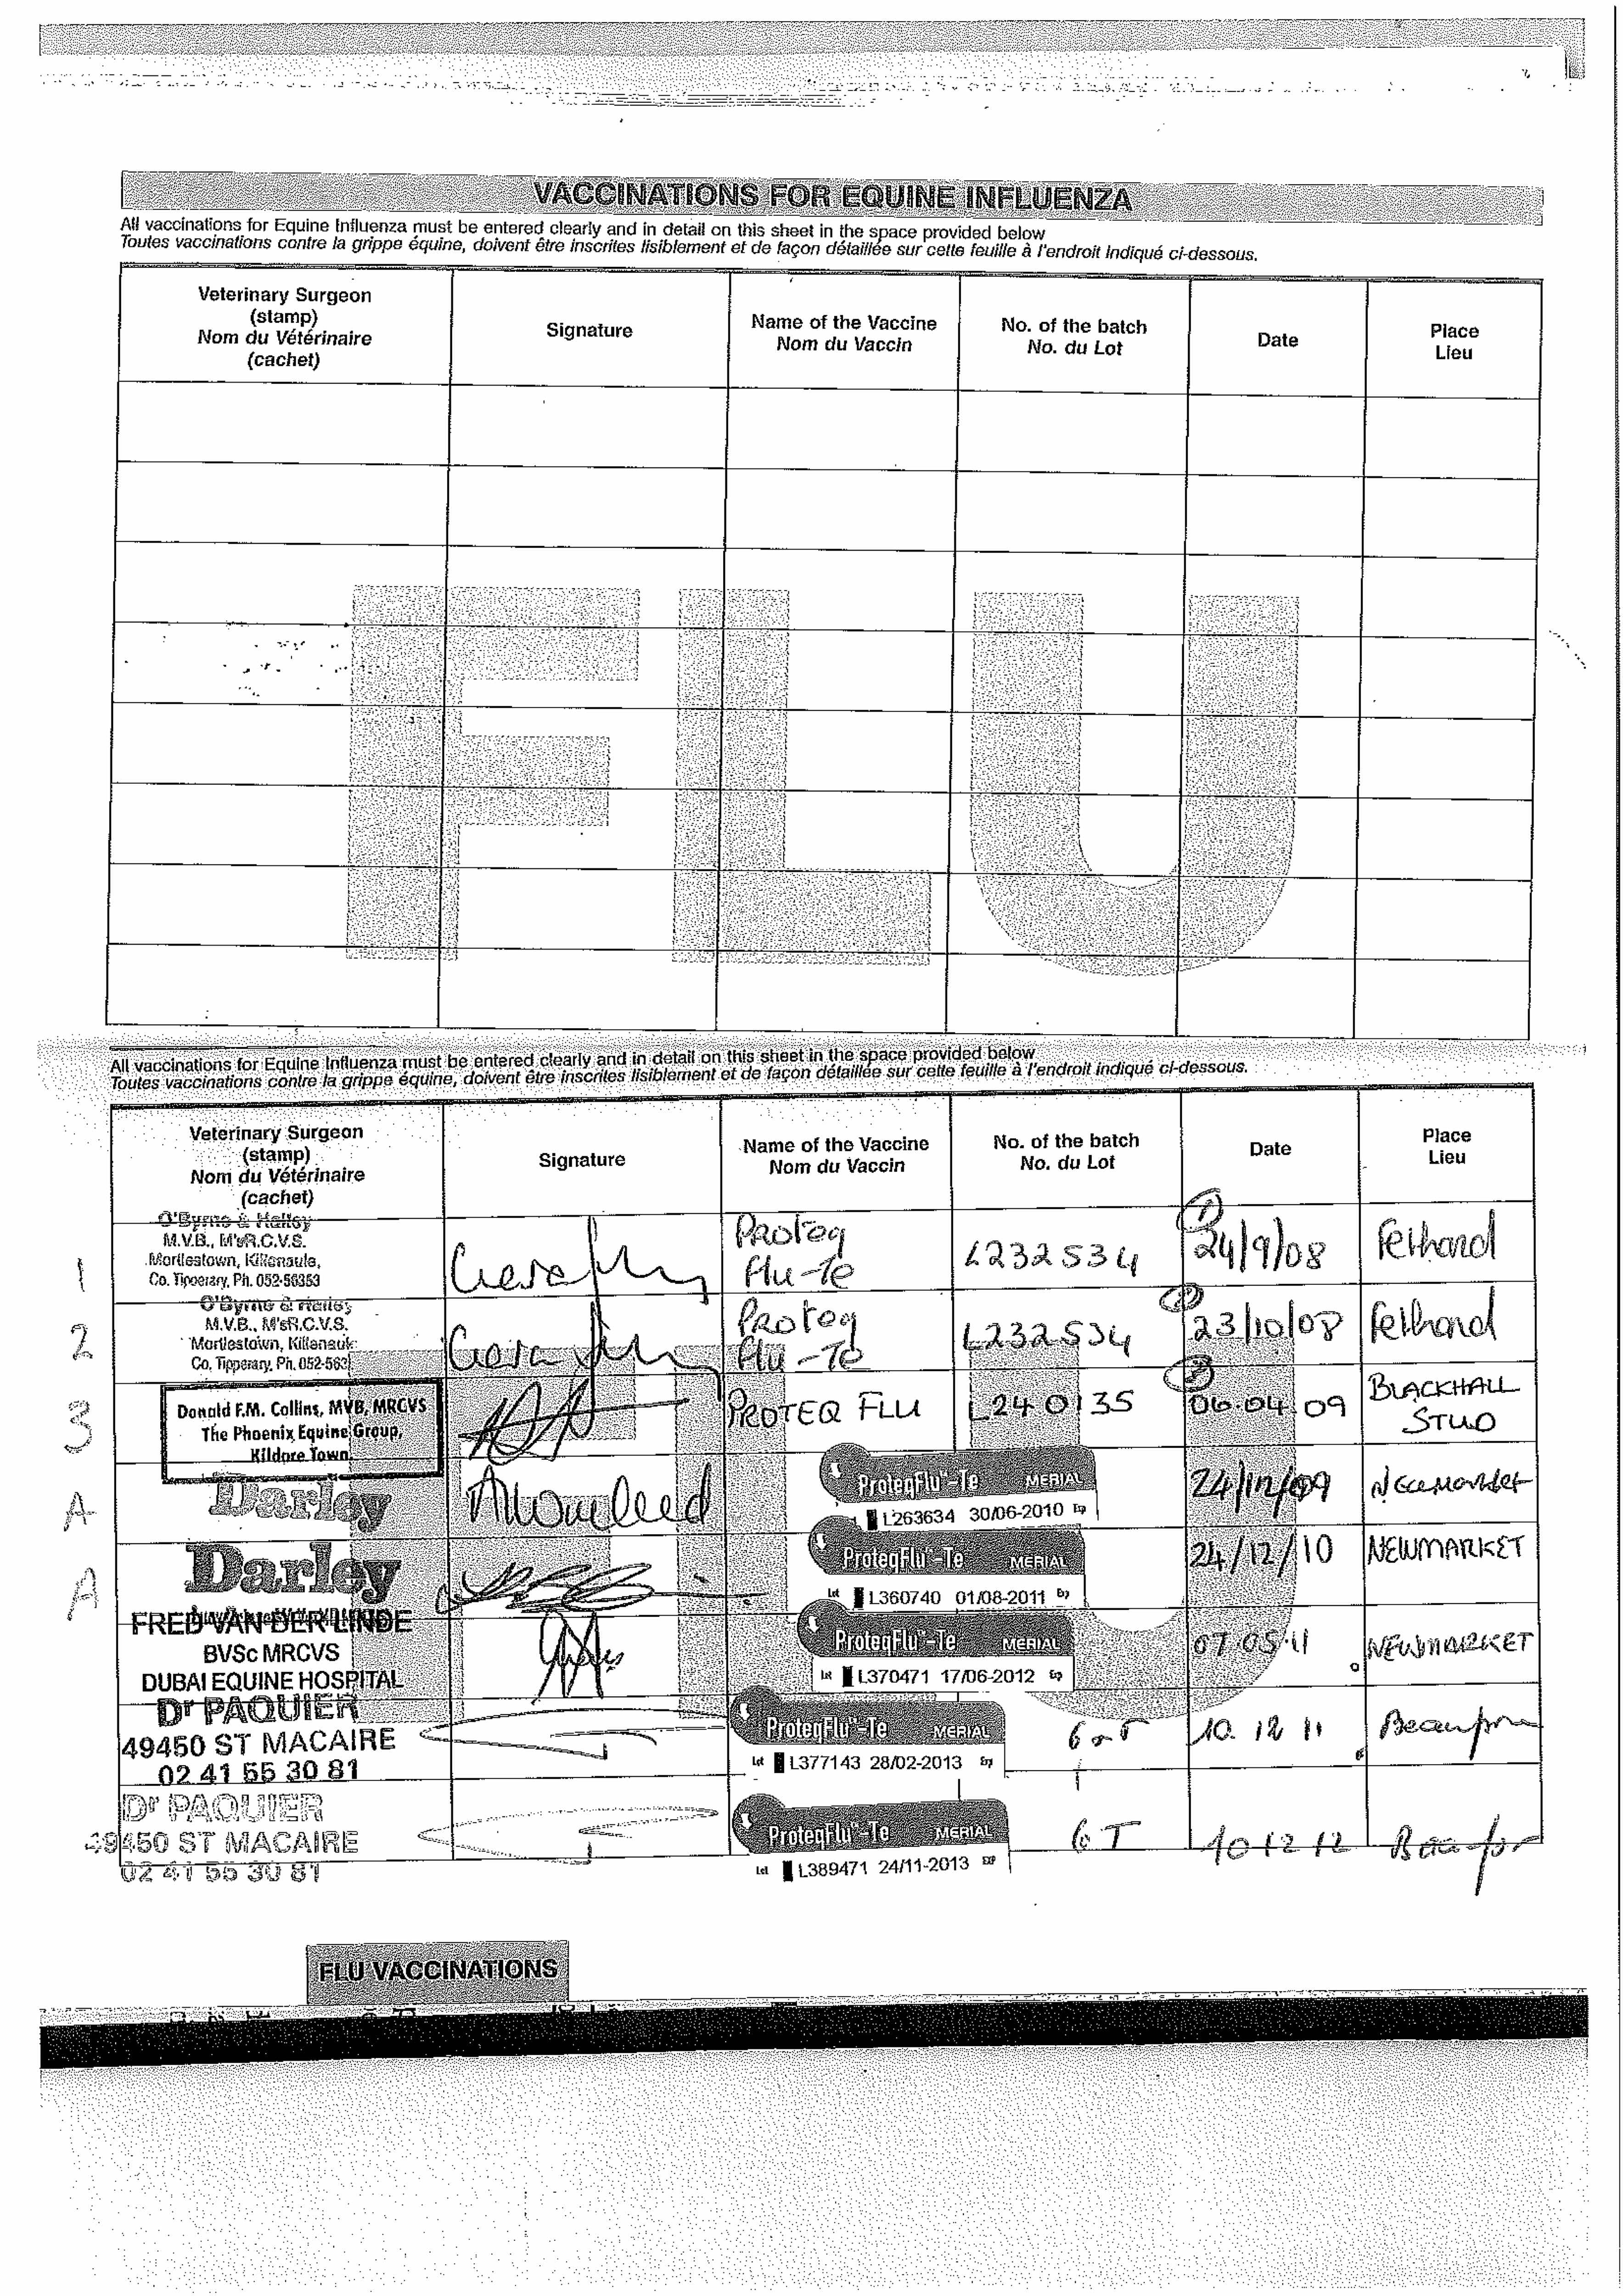 VACCINATIONS FOR EQUINE INFLUENZA
All vaccinations for Equine Influenza must be entered clearly and in detail on this sheet in the space provided below
Toutes vaccinations contre la grippe équine, doivent être inscrites lisiblement et de façon détaillée sur cette feuille à l'endroit indiqué ci-dessous.
Veterinary Surgeon
(stamp)
Nom du Vétérinaire
(cachet)
Signature
Name of the Vaccine
Nom du Vaccin
No. of the batch
No. du Lot
Date
Place
Lieu
FLU
All vaccinations for Equine Influenza must be entered clearly and in detail on this sheet in the space provided below
Toutes vaccinations contre la grippe équine, doivent être inscrites lisiblement et de façon détaillée sur cette feuille à l'endroit indiqué ci-dessous.
Veterinary Surgeon
(stamp)
Nom du Vétérinaire
(cachet)
Signature
Name of the Vaccine
Nom du Vaccin
No. of the batch
No. du Lot
Date
Place
Lieu
1
O'Byrne & Halley
M.V.B., M'sR.C.V.S.
Mortlestown, Killenaule,
Co. Tipperary, Ph. 052-56353
Proteq
Flu-Te
L232534
1
24/9/08
Fethard
2
O'Byrne & Halley
M.V.B., M'sR.C.V.S.
Mortlestown, Killenaule
Co. Tipperary, Ph. 052-563
Proteq
Flu-Te
L232534
2
23/10/08
Fethard
3
Donald F.M. Collins, MVB, MRCVS
The Phoenix Equine Group,
Kildare Town.
PROTEQ FLU
L240135
3
06.04.09
BLACKHALL
STUD
A
Darley
ProteqFlu™-Te MERIAL
L263634 30/06-2010 Exp
24/12/09
Newmarket
A
Darley
ProteqFlu™-Te MERIAL
Lot L360740 01/08-2011 Exp
24/12/10
NEWMARKET
FRED VAN DER LINDE
BVSc MRCVS
DUBAI EQUINE HOSPITAL
ProteqFlu™-Te MERIAL
Lot L370471 17/06-2012 Exp
07.05.11
NEWMARKET
Dr PAQUIER
49450 ST MACAIRE
02 41 55 30 81
ProteqFlu™-Te MERIAL
Lot L377143 28/02-2013 Exp
10. 12 11
Dr PAQUIER
49450 ST MACAIRE
02 41 55 30 81
ProteqFlu™-Te MERIAL
Lot L389471 24/11-2013 EXP
10 12 12
FLU VACCINATIONS
FLU